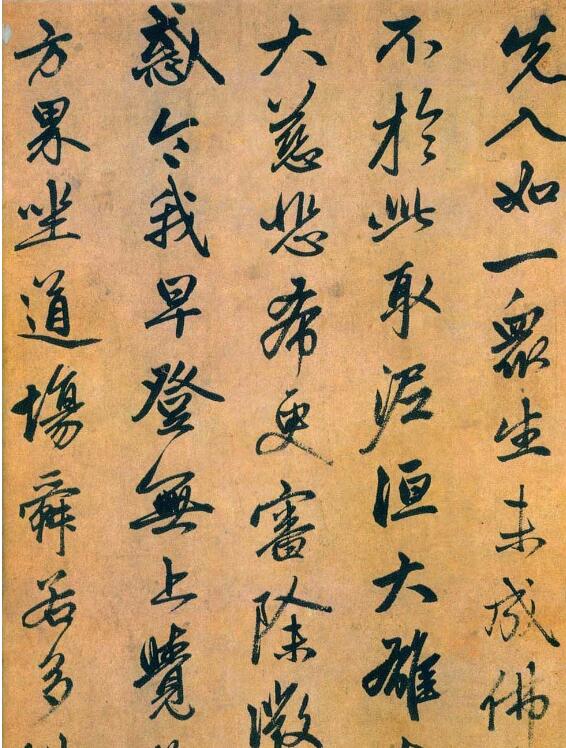 先入如一衆生未成佛
不於此取泥洹大雄
大慈悲希更審除微
惑令我早登無上覺
方界坐道場舜若多